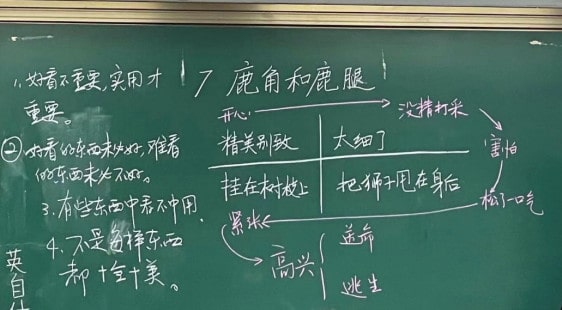 17 鹿角和鹿腿
1. 好看不重要,实用才
重要。
② 好看的东西未必好,难看
的东西未必不好。
3. 有些东西中看不中用.
4. 不是每样东西
都十全十美。
英自
开心 没精打采
精美别致 太细了
害怕
挂在树枝上 把狮子甩在身后
松了一口气
紧张
高兴
送命
逃生